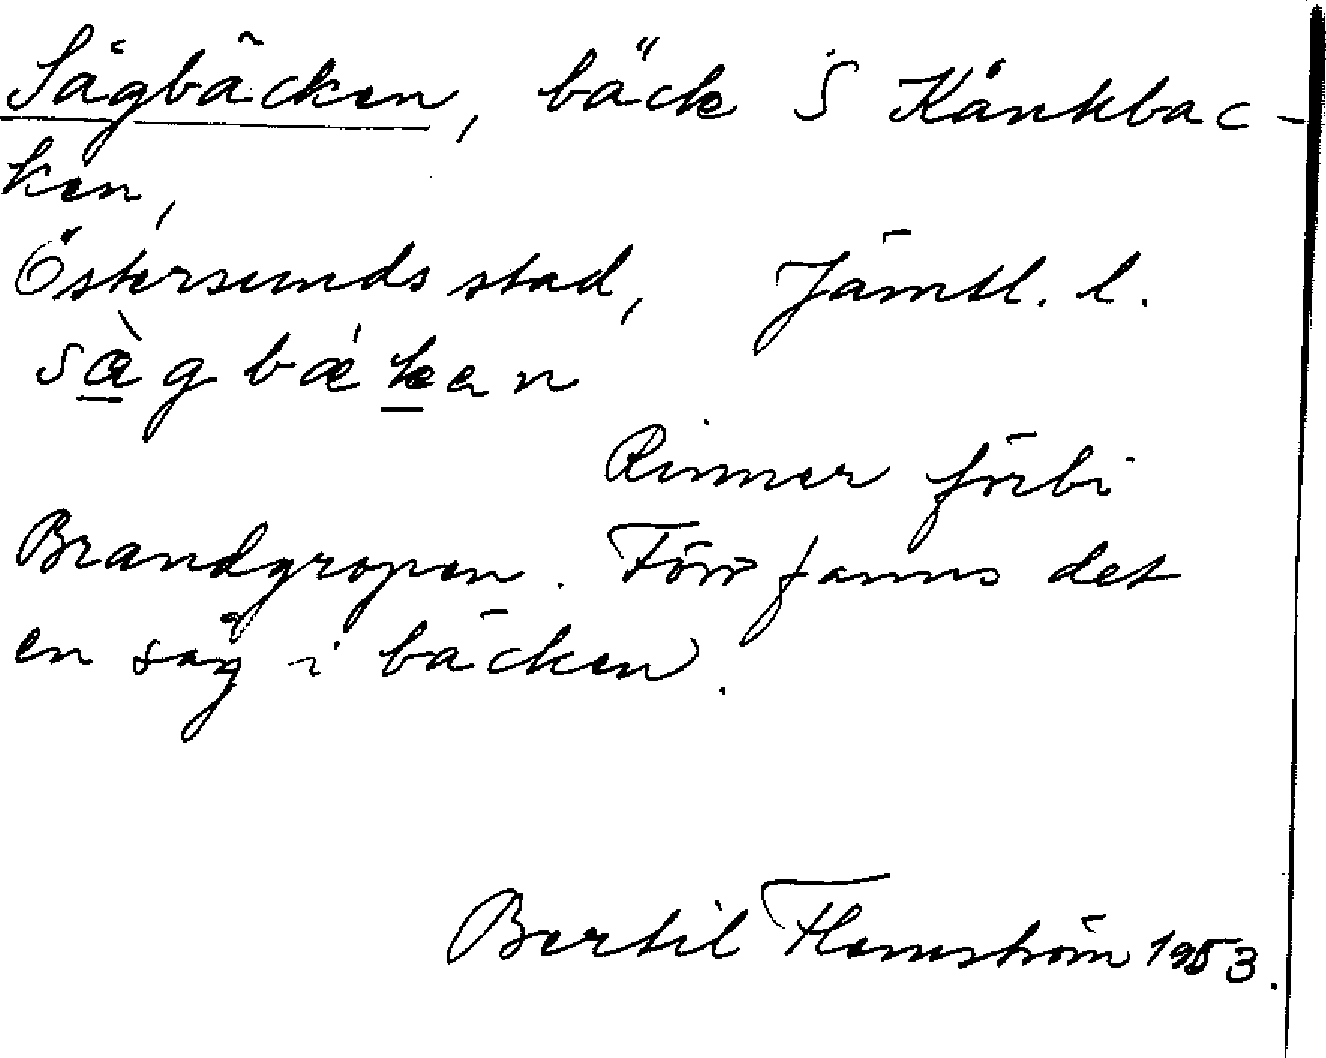 Sågbäcken, bäck S Kånkbac-
ken,
Östersunds stad, Jämtl. l.
sæ̀gbǽken
Rinner förbi
Brandgropen. Förr fanns det
en såg i bäcken.
Bertil Flemström 1953.